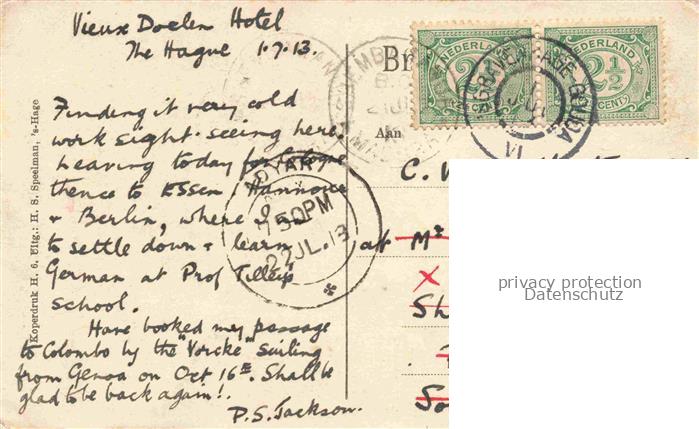 Vieux Doelen Hotel
The Hague 1.7.13.
Finding it very cold
work sight-seeing here.
Leaving today for Cologne
thence to Essen, Hannover
& Berlin, where I
to settle down & learn
German at Prof Tilley's
school.
Have booked my passage
to Colombo by the "Yorcke" sailing
from Genoa on Oct 16th. Shall be
glad to be back again!.
P.S. Jackson.
Koperdruk H. 6, Uitg.: H. S. Speelman, 's-Hage
Br
Aan
NEDERLAND
NEDERLAND
2½
CENT
'S GRAVENHAGE-GOUDA
VI
ADYAR
7 50PM
22 JL.13
C. W
at Mr
X
Sh
So
privacy protection
Datenschutz